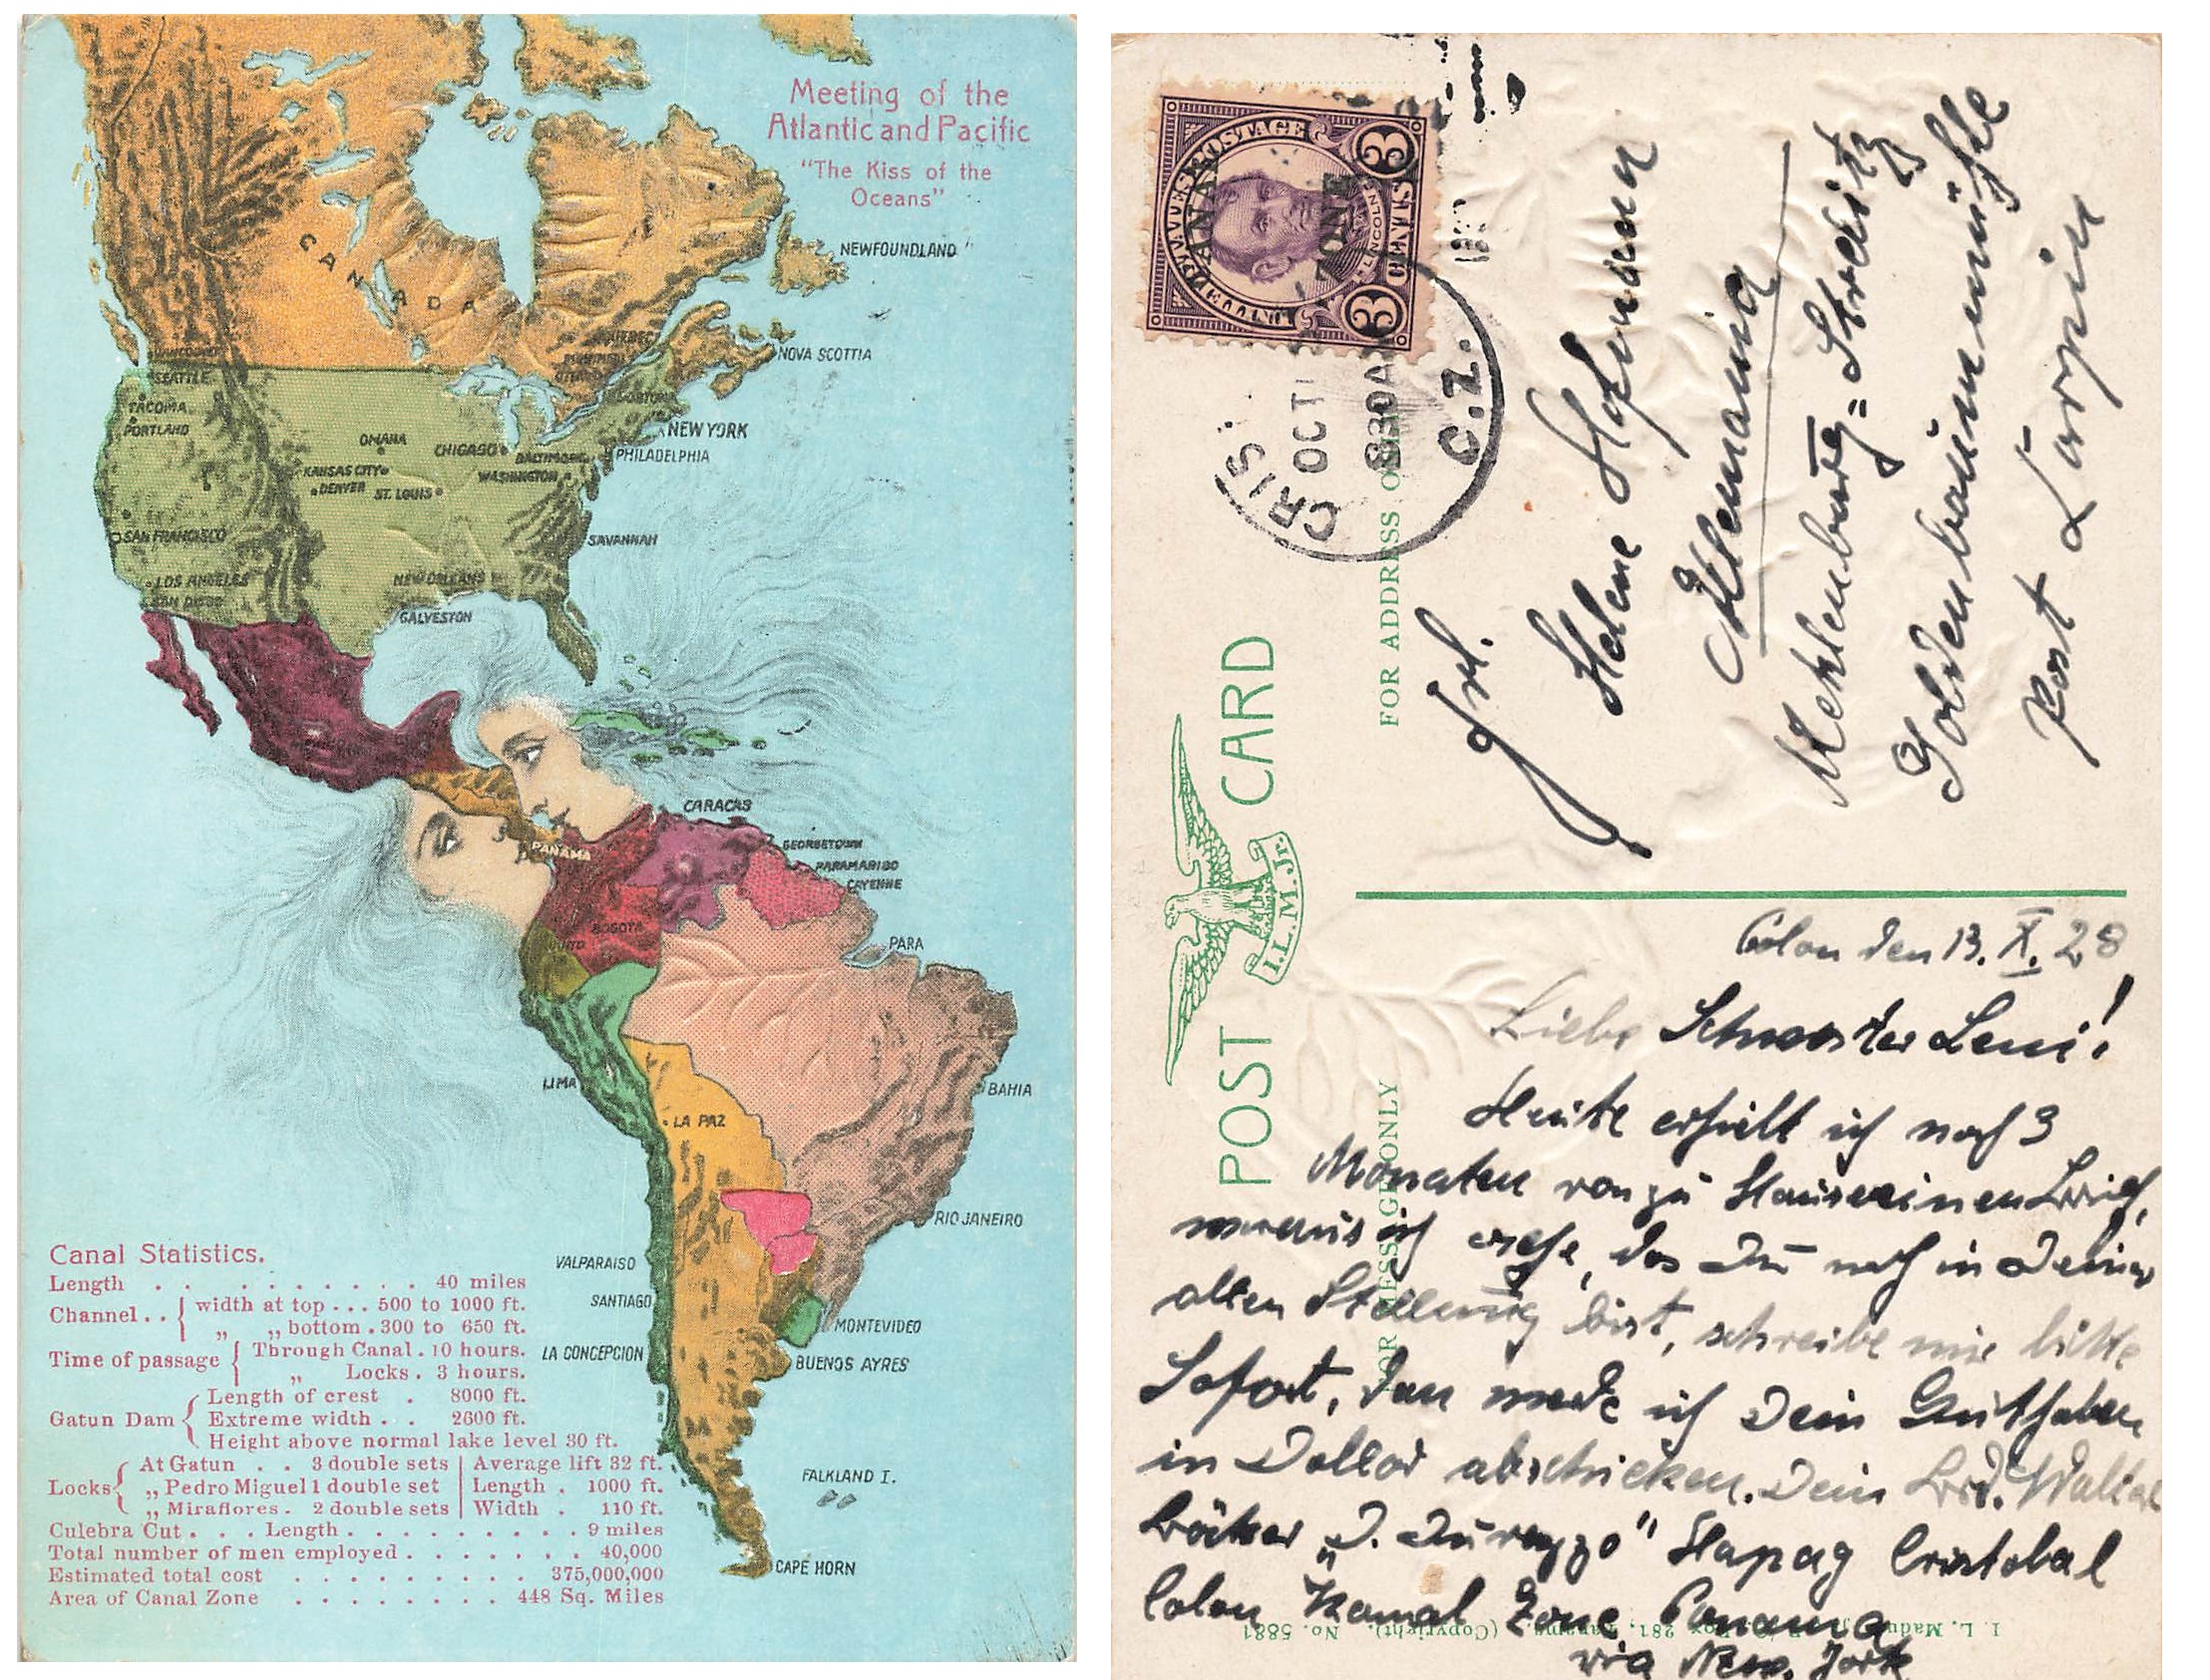 Meeting of the
Atlantic and Pacific
"The Kiss of the
Oceans"
CANADA
NEWFOUNDLAND
QUEBEC
NOVA SCOTTIA
VANCOUVER
SEATTLE
TACOMA
PORTLAND
BOSTON
NEW YORK
OMAHA
CHICAGO
BALTIMORE
PHILADELPHIA
KANSAS CITY
WASHINGTON
DENVER
ST. LOUIS
SAN FRANCISCO
SAVANNAH
LOS ANGELES
NEW ORLEANS
SAN DIEGO
GALVESTON
CARACAS
PANAMA
GEORGETOWN
PARAMARIBO
CAYENNE
BOGOTA
QUITO
PARA
LIMA
BAHIA
LA PAZ
RIO JANEIRO
VALPARAISO
SANTIAGO
MONTEVIDEO
LA CONCEPCION
BUENOS AYRES
FALKLAND I.
CAPE HORN
Canal Statistics.
Length . . . . . . . . . 40 miles
Channel . . { width at top . . . 500 to 1000 ft.
„ „ bottom . 300 to 650 ft.
Time of passage { Through Canal . 10 hours.
„ Locks . 3 hours.
Gatun Dam { Length of crest . 8000 ft.
Extreme width . . 2600 ft.
Height above normal lake level 30 ft.
Locks { At Gatun . . 3 double sets | Average lift 32 ft.
„ Pedro Miguel 1 double set | Length . 1000 ft.
„ Miraflores . 2 double sets | Width . 110 ft.
Culebra Cut . . . Length . . . . . . . . . . 9 miles
Total number of men employed . . . . . . . 40,000
Estimated total cost . . . . . . . . . 375,000,000
Area of Canal Zone . . . . . . . . 448 Sq. Miles
POSTAGE
LINCOLN
3 3
ZONE
CRIS
OCT
830A
C.Z.
POST CARD
I.L.M.Jr.
FOR ADDRESS
FOR MESSAGE ONLY
Frl.
Helene Hofmann
Alemania
Mecklenburg=Strelitz
Goldenbaummühle
Post Carpin
Colon den 13. X. 28
Liebe Schwester Leni!
Heute erhielt ich nach 3
Monaten von zu Hause einen Brief,
woraus ich ersehe, das Du noch in Deiner
alten Stellung bist, schreibe mir bitte
Sofort, dan werde ich Dein Guthaben
in Dollar abschicken. Dein Brd. Walter
Bäcker Hapag Cristobal
Colon Kanal Zone Panama
via New. York
I. L. Maduro 281, Panama. (Copyright). No. 5881